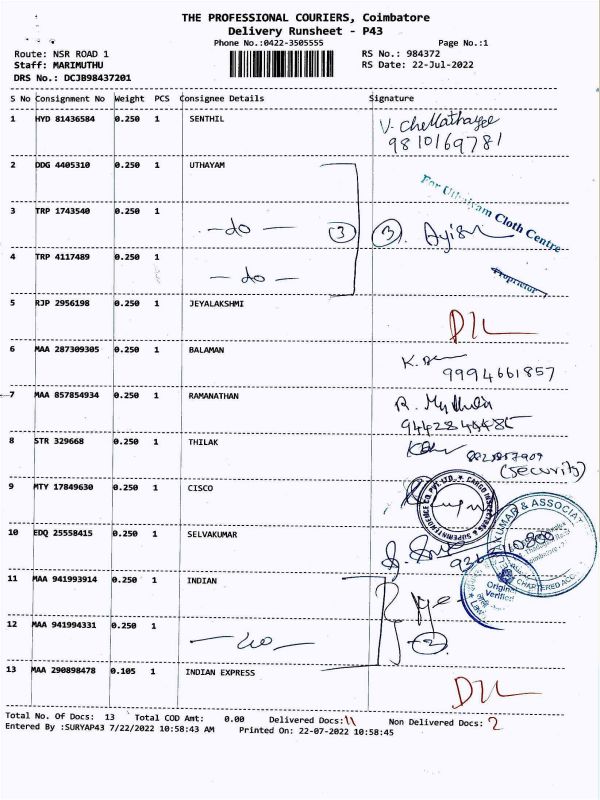 THE PROFESSIONAL COURIERS, Coimbatore
Delivery Runsheet - P43
Phone No.:0422-3505555 Page No.:1
Route: NSR ROAD 1 RS No.: 984372
Staff: MARIMUTHU RS Date: 22-Jul-2022
DRS No.: DCJB98437201
S No Consignment No Weight PCS Consignee Details Signature
1 HYD 81436584 0.250 1 SENTHIL
9810169781
2 DDG 4405310 0.250 1 UTHAYAM
For Uthaiyam Cloth Centre
3 TRP 1743540 0.250 1 -do- 3 3.
4 TRP 4117489 0.250 1 -do- Proprietor
5 RJP 2956198 0.250 1 JEYALAKSHMI
6 MAA 287309305 0.250 1 BALAMAN
9994661857
7 MAA 857854934 0.250 1 RAMANATHAN
8 STR 329668 0.250 1 THILAK
(Security)
9 MTY 17849630 0.250 1 CISCO
10 EDQ 25558415 0.250 1 SELVAKUMAR
CHARTERED ACC
11 MAA 941993914 0.250 1 INDIAN
Original
Verified
12 MAA 941994331 0.250 1 -do- 2
13 MAA 290898478 0.105 1 INDIAN EXPRESS
Total No. Of Docs: 13 Total COD Amt: 0.00 Delivered Docs: 11 Non Delivered Docs: 2
Entered By :SURYAP43 7/22/2022 10:58:43 AM Printed On: 22-07-2022 10:58:45